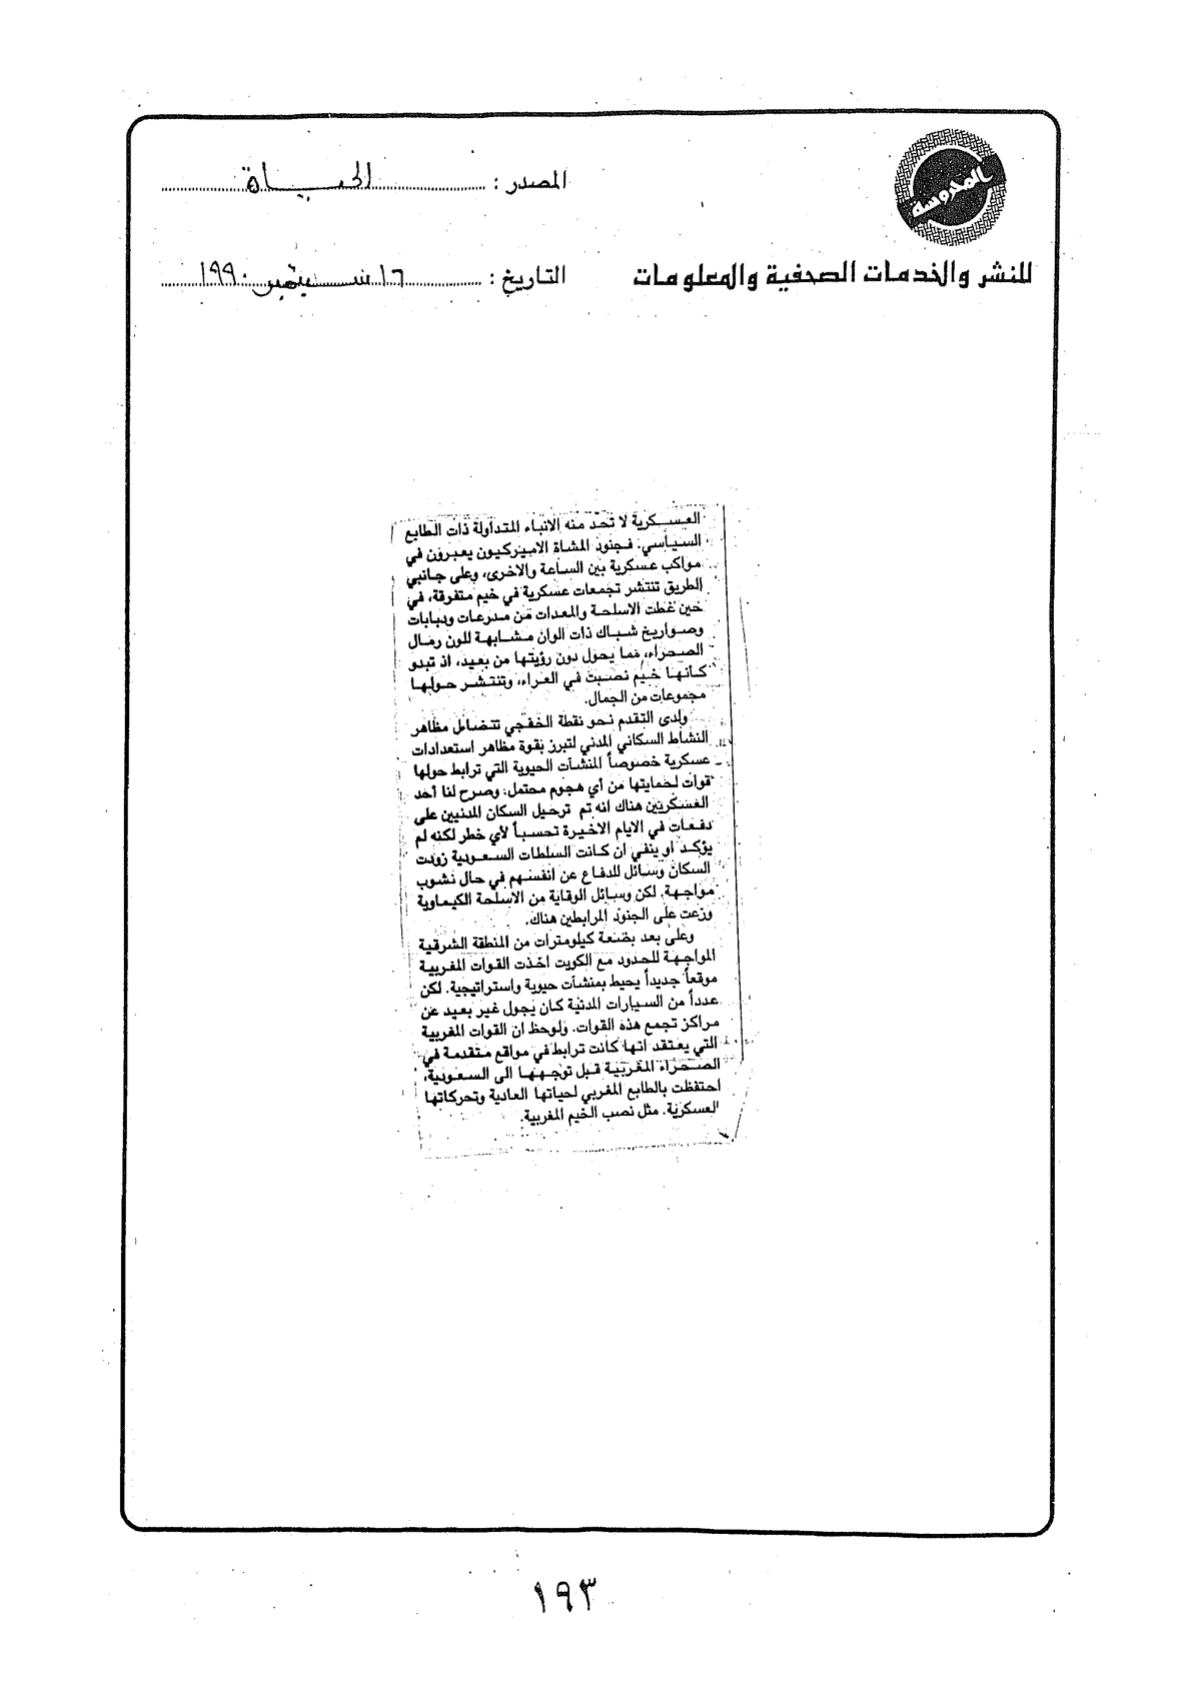 المدوسة
للنشر والخدمات الصحفية والمعلومات
المصدر : الحياة
التاريخ : ١٦ سبتمبر ١٩٩٠
العسكرية لا تحد منه الانباء المتداولة ذات الطابع
السياسي. فجنود المشاة الاميركيون يعبرون في
مواكب عسكرية بين الساعة والاخرى، وعلى جانبي
الطريق تنتشر تجمعات عسكرية في خيم متفرقة، في
حين غطت الاسلحة والمعدات من مدرعات ودبابات
وصواريخ شباك ذات الوان مشابهة للون رمال
الصحراء، مما يحول دون رؤيتها من بعيد، اذ تبدو
كانها خيم نصبت في العراء، وتنتشر حولها
مجموعات من الجمال.
ولدى التقدم نحو نقطة الخفجي تتضاءل مظاهر
النشاط السكاني المدني لتبرز بقوة مظاهر استعدادات
عسكرية خصوصاً المنشآت الحيوية التي ترابط حولها
قوات لحمايتها من أي هجوم محتمل. وصرح لنا أحد
العسكريين هناك انه تم ترحيل السكان المدنيين على
دفعات في الايام الاخيرة تحسباً لأي خطر لكنه لم
يؤكد او ينفي ان كانت السلطات السعودية زودت
السكان وسائل للدفاع عن انفسهم في حال نشوب
مواجهة. لكن وسائل الوقاية من الاسلحة الكيماوية
وزعت على الجنود المرابطين هناك.
وعلى بعد بضعة كيلومترات من المنطقة الشرقية
المواجهة للحدود مع الكويت اخذت القوات المغربية
موقعاً جديداً يحيط بمنشآت حيوية واستراتيجية. لكن
عدداً من السيارات المدنية كان يجول غير بعيد عن
مراكز تجمع هذه القوات. ولوحظ ان القوات المغربية
التي يعتقد انها كانت ترابط في مواقع متقدمة في
الصحراء المغربية قبل توجهها الى السعودية،
احتفظت بالطابع المغربي لحياتها العادية وتحركاتها
العسكرية. مثل نصب الخيم المغربية.
١٩٣